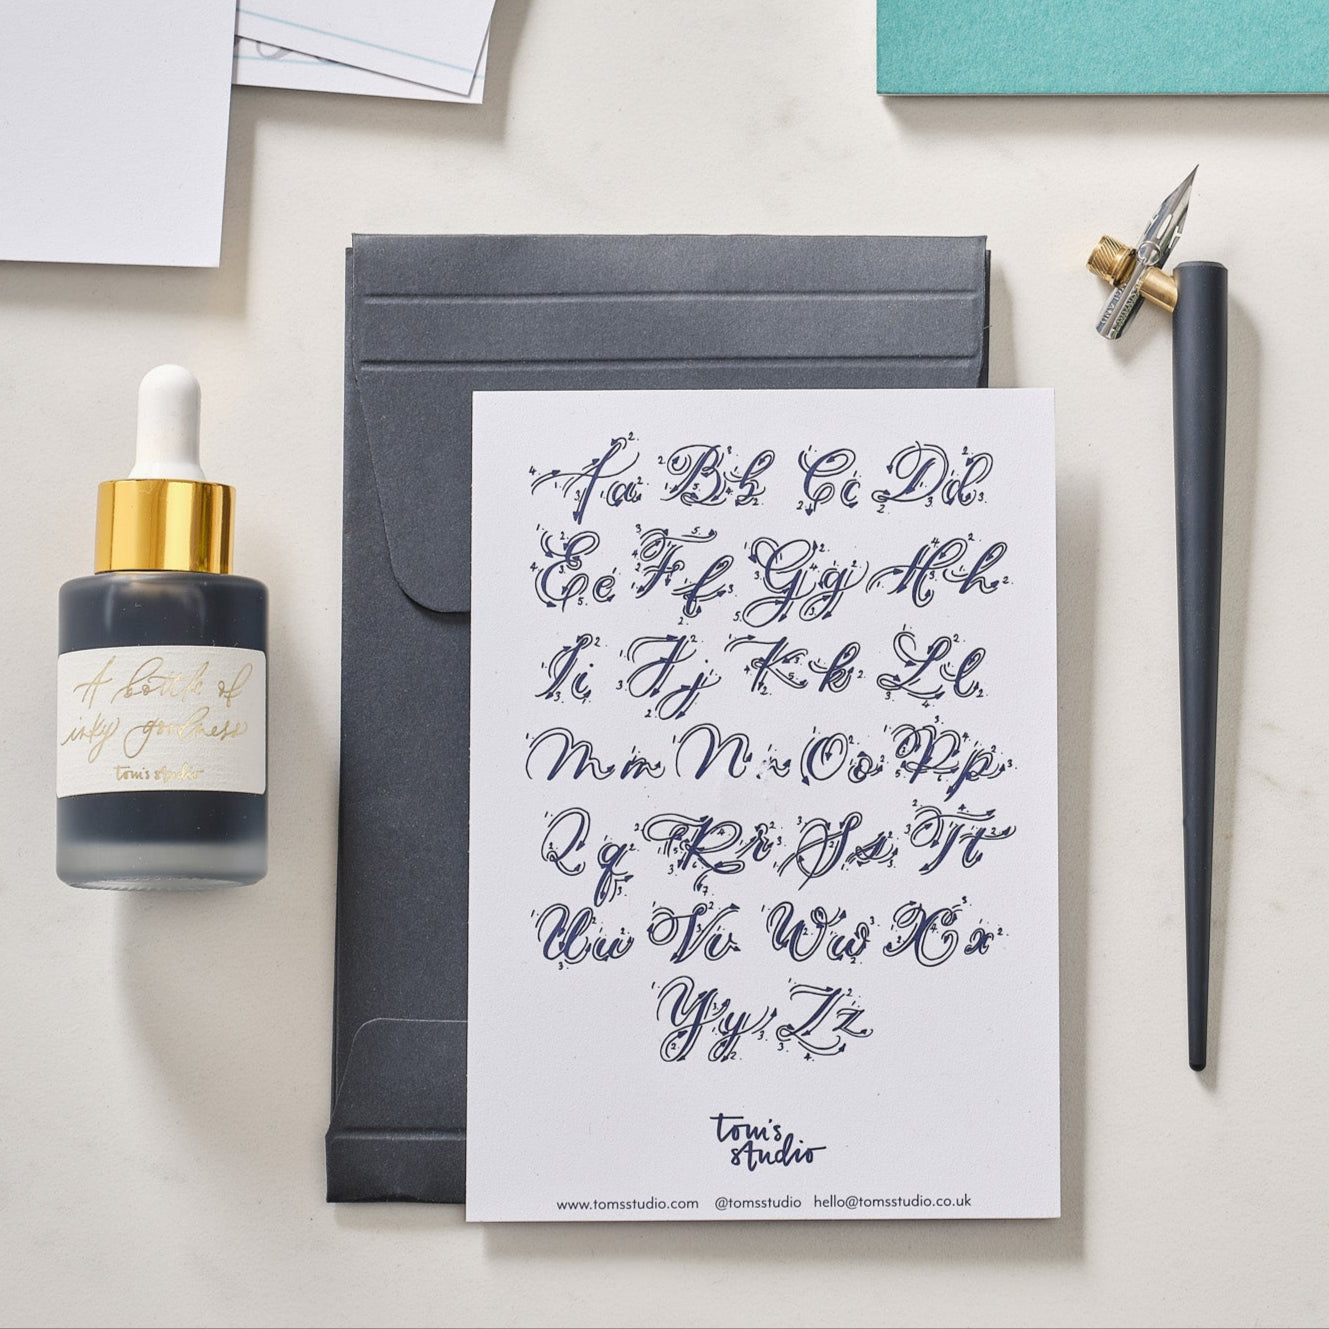 A bottle of
inky goodness
tom's studio
Aa Bb Cc Dd
Ee Ff Gg Hh
Ii Jj Kk Ll
Mm Nn Oo Pp
Qq Rr Ss Tt
Uu Vv Ww Xx
Yy Zz
tom's
studio
www.tomsstudio.com @tomsstudio hello@tomsstudio.co.uk